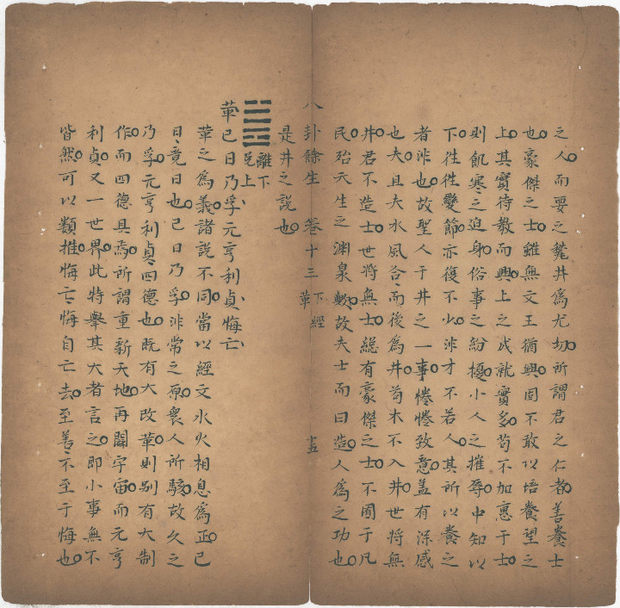 之人而要之井爲尤切所謂君之仁者善養士
也豪傑之士雖無文王猶興固不敢以培養望之
上其實待教而興上之成就實多苟不加惠于士
則飢寒之迫身俗事之紛擾小人之摧辱中知以
下徃徃變節亦復不少非才不若人其所以養之
者非也故聖人于井之一事惓惓致意盖有深感
也夫且大水風谷而後爲井苟木不入井世將無
井君不造士世將無士縂有豪傑之士不囿于凡
民殆天生之淵泉歟故夫士而曰造人爲之功也
八卦餘生 卷十三 下經 革
是井之說也
離下兌上
革已日乃孚元亨利貞悔亡
革之爲義諸說不同當以經文水火相息爲正已
日竟日也已日乃孚非常之原衆人所駭故久之
乃孚元亨利貞四德也既有大改革則别有大制
作而四德具焉所謂重新天地再闢宇宙而元亨
利貞又一世界此特舉其大者言之即小事無不
皆然可以類推悔亡悔自亡去至善不至于悔也